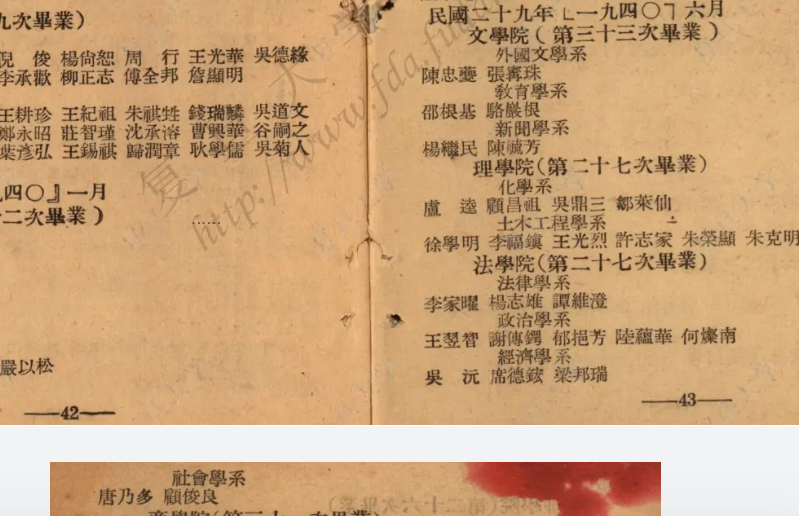 九次畢業）
倪 俊 楊尙恕 周 行 王光華 吳德緣
李承歡 柳正志 傅全邦 詹顯明
王耕珍 王紀祖 朱祺甡 錢瑞麟 吳道文
鄭永昭 莊智瑾 沈承溶 曹興華 谷嗣之
葉彥弘 王錫祺 歸潤章 耿學儒 吳菊人
九四〇』一月
十二次畢業）
嚴以松
——42——
民國二十九年『一九四〇』六月
文學院（第三十三次畢業）
外國文學系
陳忠夔 張霱珠
敎育學系
邵根基 駱巖根
新聞學系
楊繼民 陳毓芳
理學院（第二十七次畢業）
化學系
盧 逵 顧昌祖 吳鼎三 鄒萊仙
土木工程學系
徐學明 李福鎭 王光烈 許志家 朱榮顯 朱克明
法學院（第二十七次畢業）
法律學系
李家曜 楊志雄 譚維澄
政治學系
王翌智 謝傅鍔 郁挹芳 陸蘊華 何燦南
經濟學系
吳 沅 席德鉉 梁邦瑞
——43——
社會學系
唐乃多 顧俊良